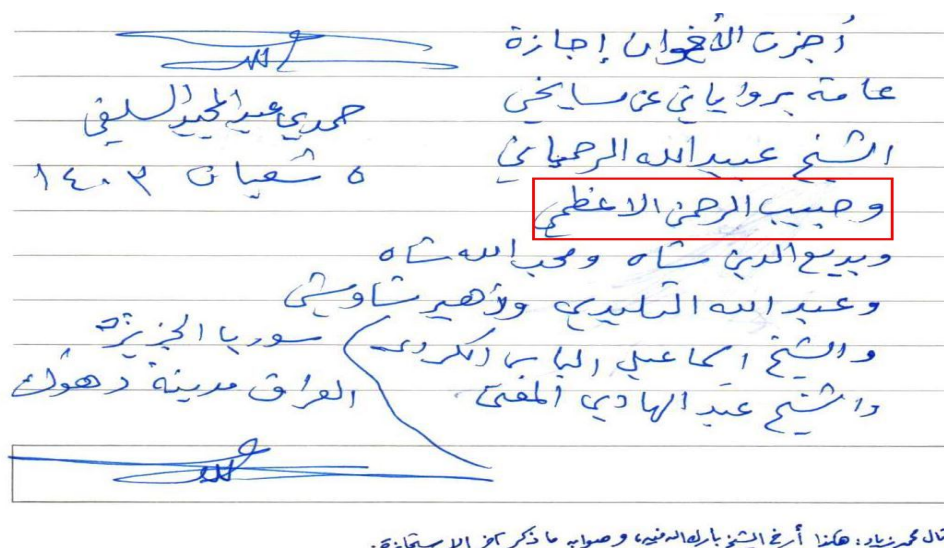 أجزت الأخوان إجازة
عامة بروياتي عن مسايخي
الشيخ عبيد الله الرحماني
وحبيب الرحمن الاعظمي
وبديع الدين شاه ومحب الله شاه
وعبد الله التليدي وزهير شاويشي
والشيخ اسماعيل الياس الكردي
والشيخ عبد الهادي المفتي
حمدي عبد المجيد السلفي
٥ شعبان ١٤٠٣
سوريا الجزيرة
العراق مدينة دهوك
قال محمد زياد: هكذا أرخ الشيخ بارك الله فيه، وصوابه ما ذكر آخر الاستجازة.